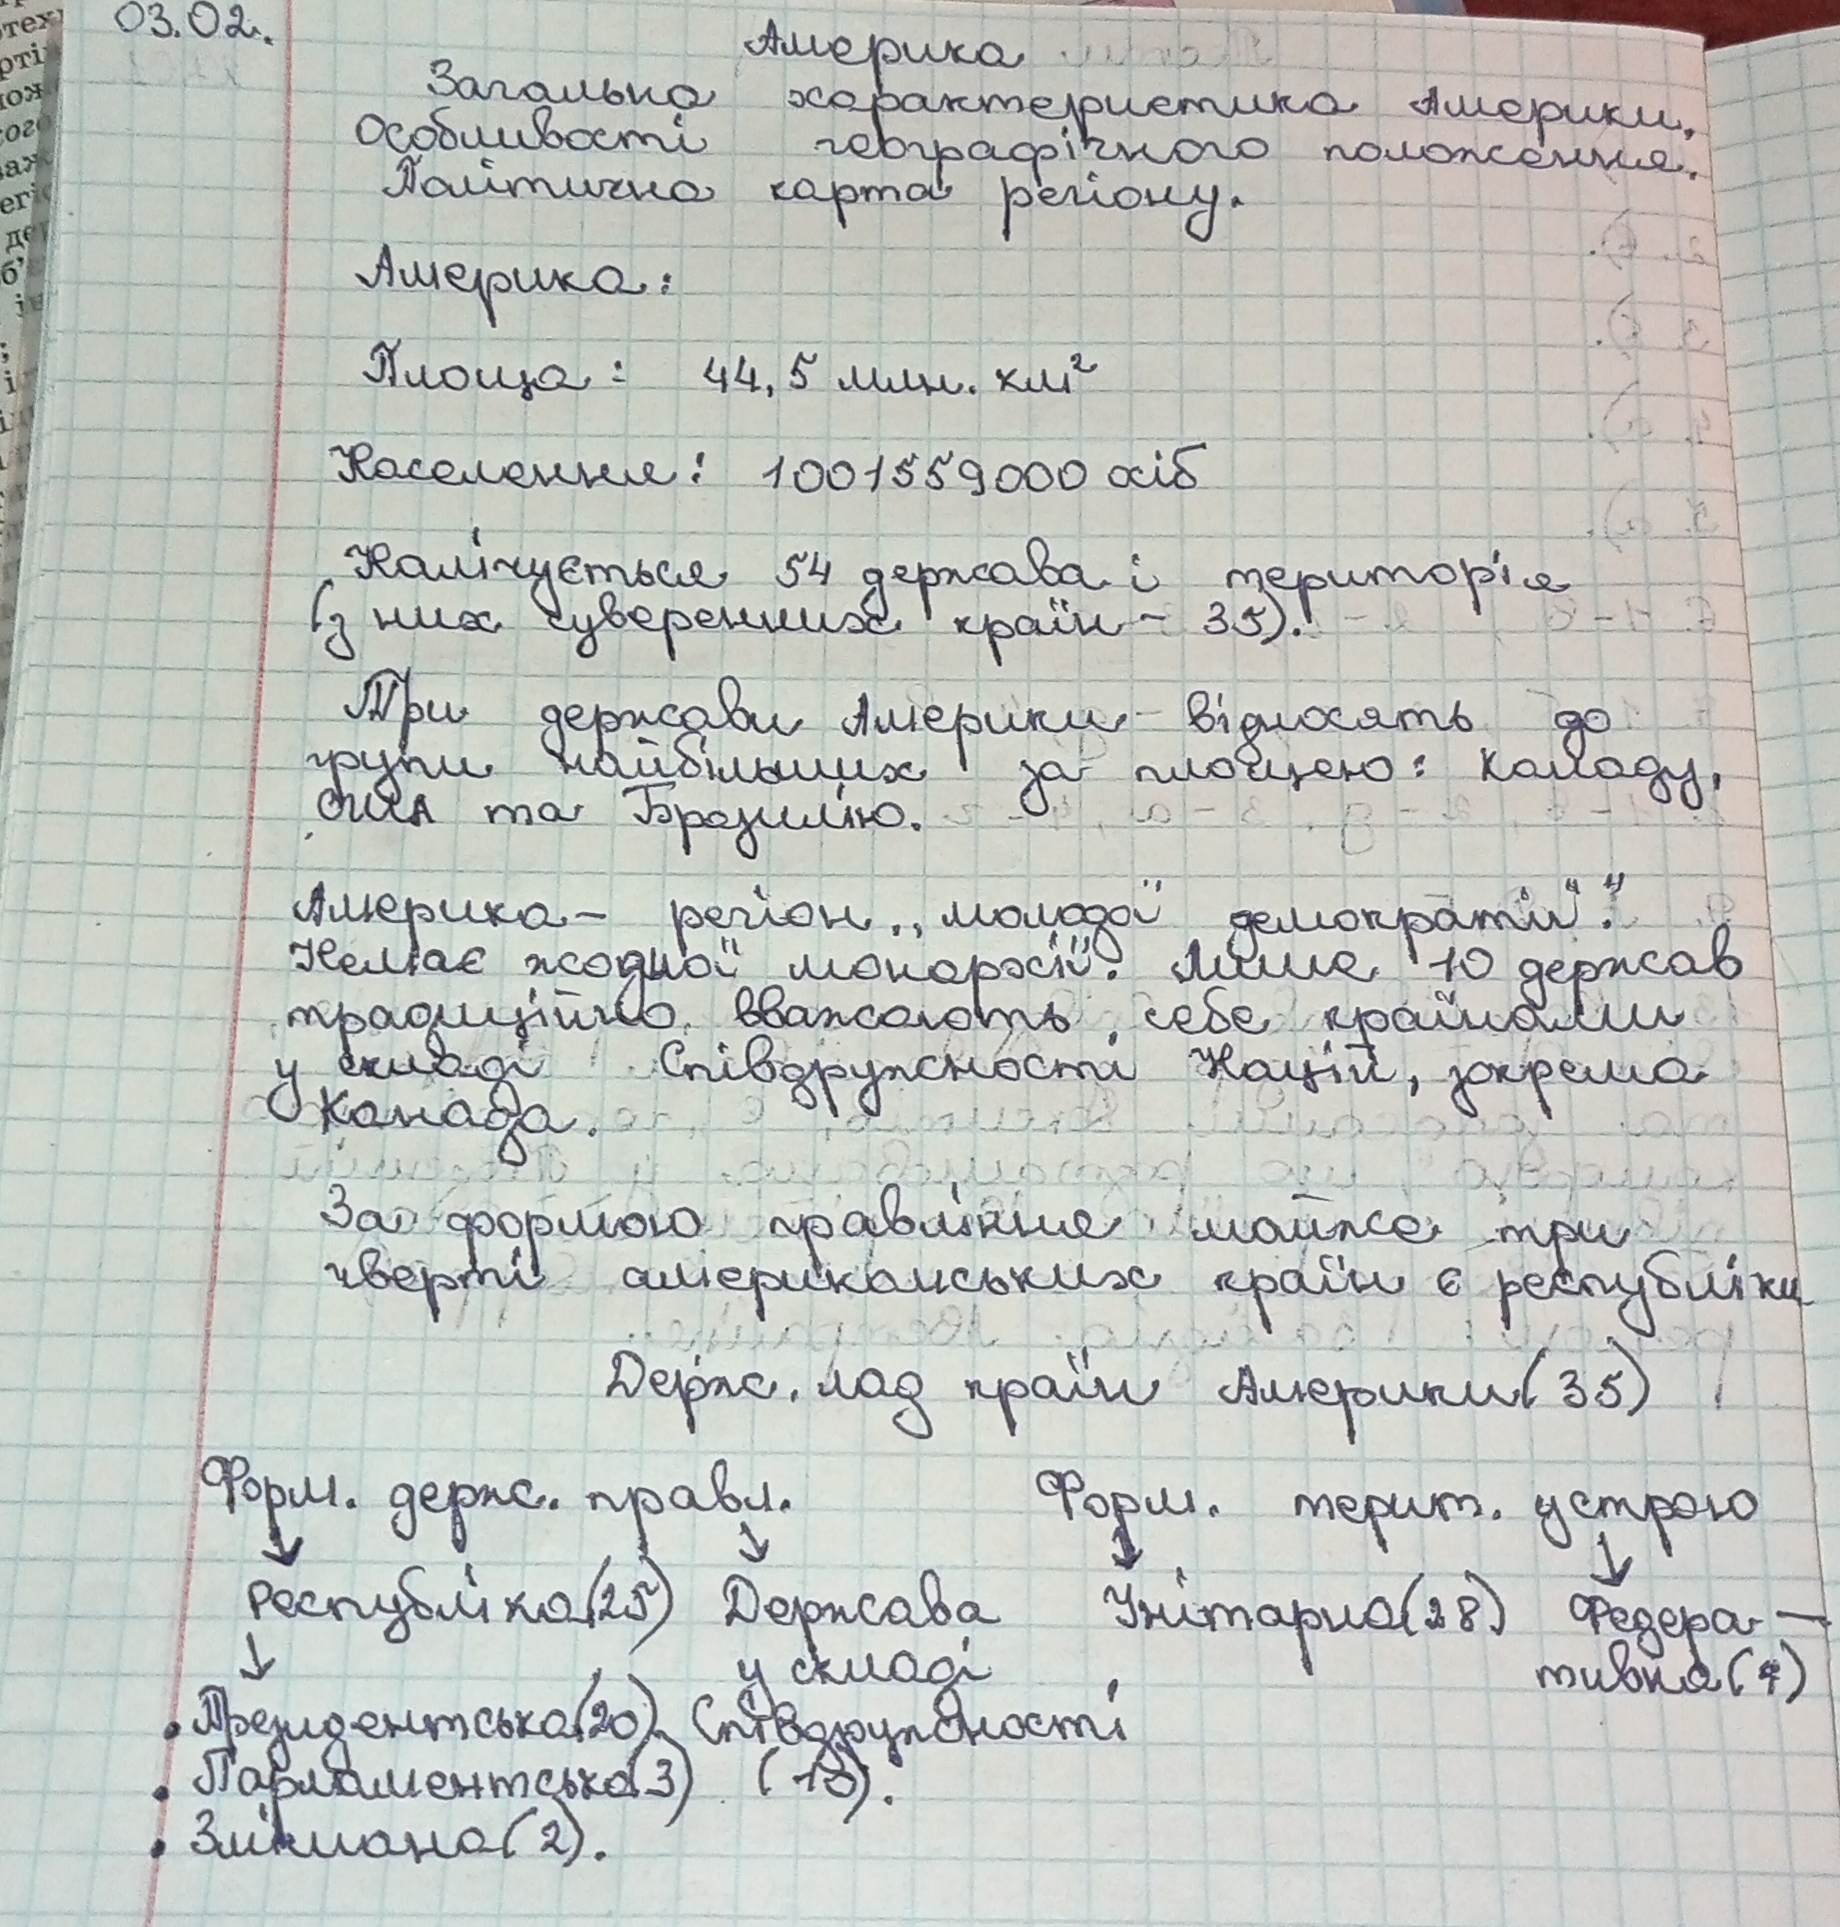 03.02.
Америка
Загальна характеристика Америки.
Особливості географічного положення.
Політична карта регіону.
Америка:
Площа: 44,5 млн. км²
Населення: 1001559000 осіб
Налічується 54 держава і територія
(з них суверенних країн - 35).
Три держави Америки відносять до
групи найбільших за площею: Канаду,
США та Бразилію.
Америка - регіон „молодої демократії".
Немає жодної монархії. Лише 10 держав
традиційно вважають себе країнами
у складі Співдружності Націй, зокрема
Канада.
За формою правління майже три
чверті американських країн є республіки
Держ. лад країн Америки (35)
Форм. держ. правл. Форм. терит. устрою
↓ ↓ ↓ ↓
Республіка (25) Держава Унітарна (28) Федера-
↓ у складі тивна (4)
• Президентська (20). Співдружності
• Парламентська (3) (10).
• Змішана (2).